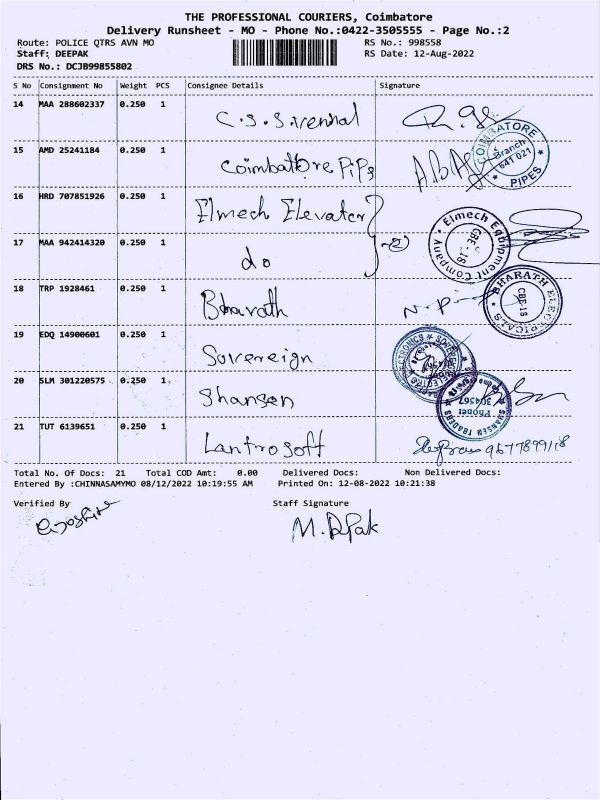 THE PROFESSIONAL COURIERS, Coimbatore
Delivery Runsheet - MO - Phone No.:0422-3505555 - Page No.:2
Route: POLICE QTRS AVN MO
RS No.: 998558
Staff: DEEPAK
RS Date: 12-Aug-2022
DRS No.: DCJB99855802
S No Consignment No Weight PCS Consignee Details Signature
14 MAA 288602337 0.250 1
15 AMD 25241184 0.250 1 Coimbattore Pips
COIMBATORE PIPES Branch 641 021
16 HRD 707851926 0.250 1 Elmech Elevater
Elmech Equipment Company CBE-18
17 MAA 942414320 0.250 1 do
18 TRP 1928461 0.250 1 Bharath
N-P
BHARATH ELECTRICALS CBE-18
19 EDQ 14900601 0.250 1 Sovereign
20 SLM 301220575 0.250 1 Shansen
SHANSEN TRADERS Phone: 304567
21 TUT 6139651 0.250 1 Lantrosoft
Total No. Of Docs: 21 Total COD Amt: 0.00 Delivered Docs: Non Delivered Docs:
Entered By :CHINNASAMYMO 08/12/2022 10:19:55 AM Printed On: 12-08-2022 10:21:38
Verified By Staff Signature
M. Dpak